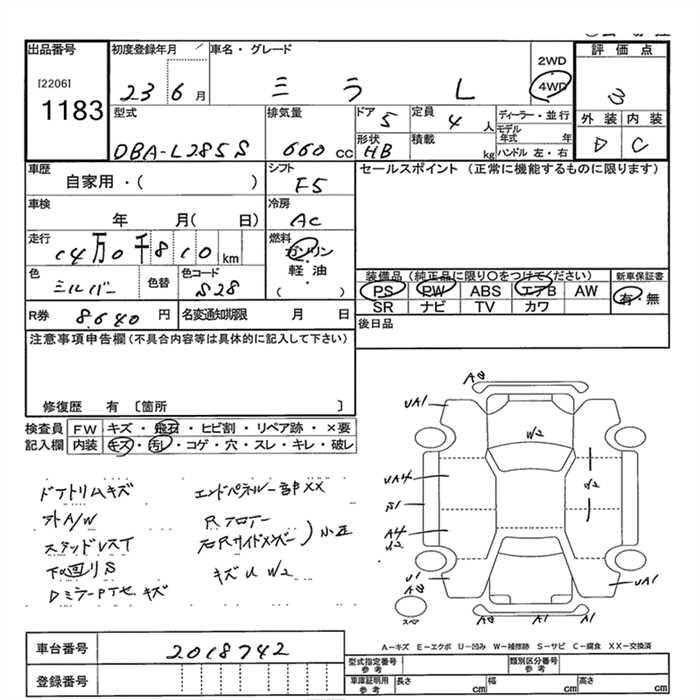 出品番号 初度登録年月 車名・グレード 評価点
[2206] 1183
23 6月 ミラ L 2WD 4WD 3
型式 排気量 ドア 5 定員 4人 ディーラー・並行 外装 内装
DBA-L285S 660cc 形状 HB 積載 kg モデル年式 年 ハンドル 左・右 D C
車歴 シフト セールスポイント (正常に機能するものに限ります)
自家用・( ) F5
車検 冷房
年 月( 日) AC
走行 燃料
14万0千810km ガソリン
軽油
( )
色 シルバー 色替 色コード S28
装備品 (純正品に限り○をつけてください) 新車保証書
PS PW ABS エアB AW 有・無
SR ナビ TV カワ
R券 8,640円 名変通知期限 月 日 後日品
注意事項申告欄(不具合内容等は具体的に記入して下さい)
修復歴 有 〔箇所 〕
検査員 FW キズ・飛石・ヒビ割・リペア跡・×要
記入欄 内装 キズ・汚レ・コゲ・穴・スレ・キレ・破レ
ドアトリムキズ エンドパネル一部XX
外A/W Rフロアー
スタッドレスT 右Rサイドメンバー 小歪
下回りS キズU W2
DミラーPTセ キズ
UA1
W2
UA4
A4
U1
UA1
A1
A1
スペア
A-キズ E-エクボ U-凹み W-補修跡 S-サビ C-腐食 XX-交換済
車台番号 2018742
登録番号
型式指定番号 参考 類別区分番号 参考
車庫証明用 参考 長さ cm 幅 cm 高さ cm